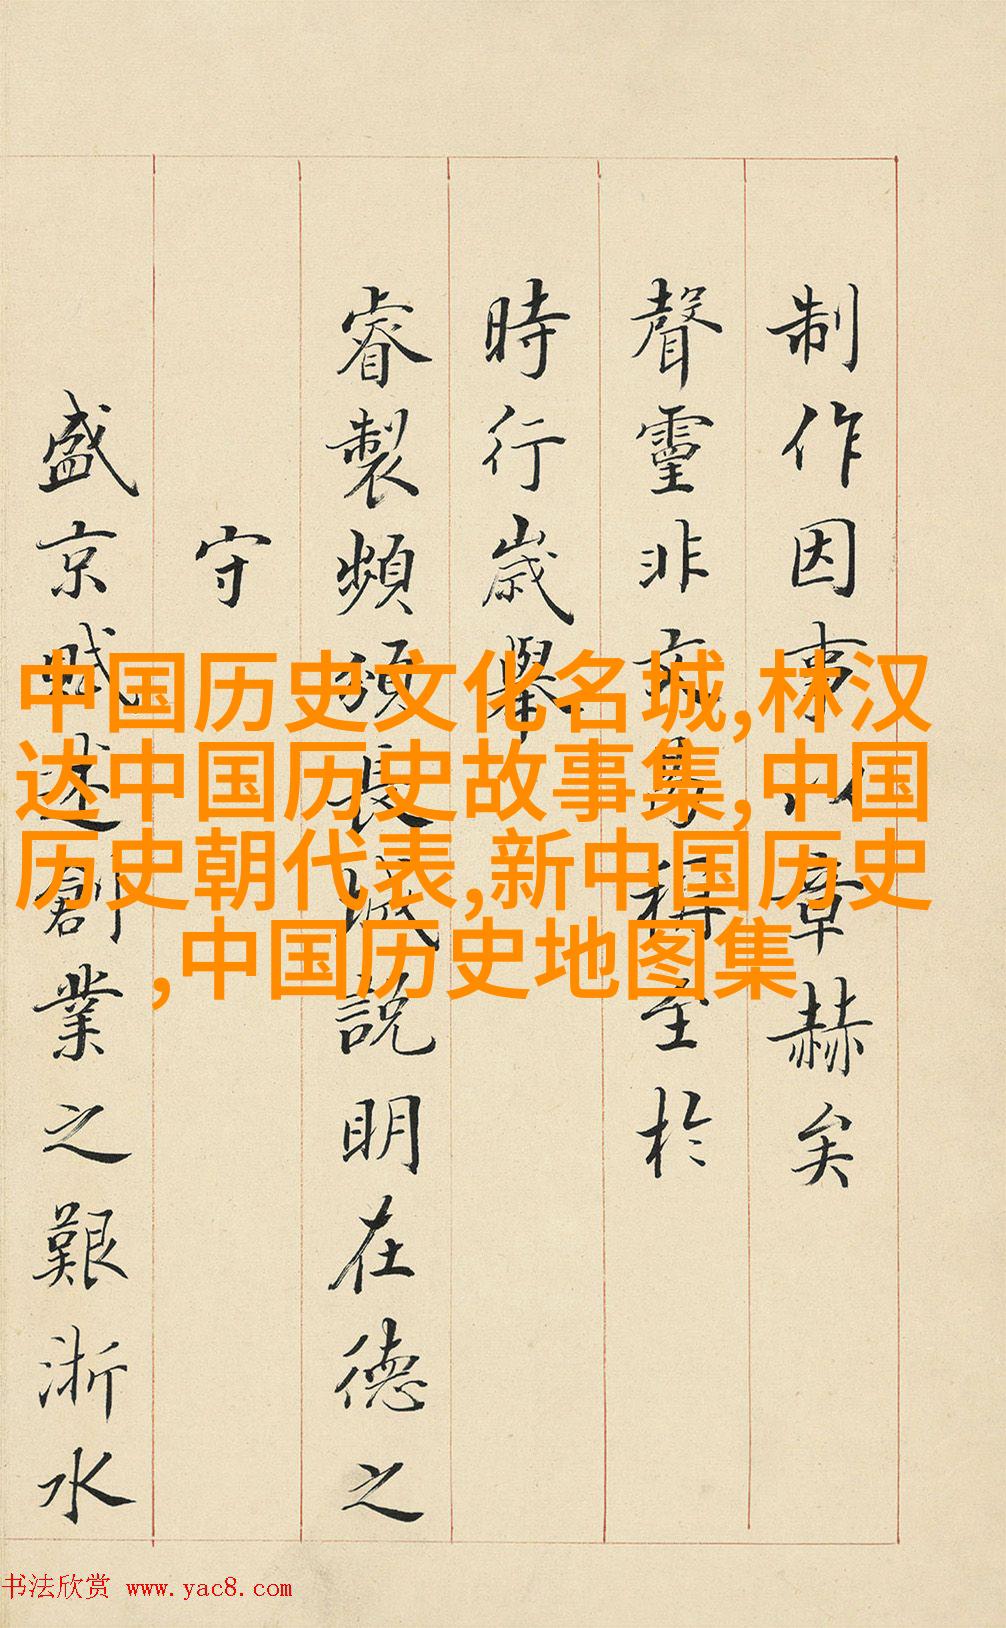 制作因事以章赫矣
聲靈非至於
時行歲舉
睿製頻頒長城說明在德之
守
盛京賦述創業之艱浙水
中国历史文化名城,林汉
达中国历史故事集,中国
历史朝代表,新中国历史
,中国历史地图集
书法欣赏 www.yac8.com